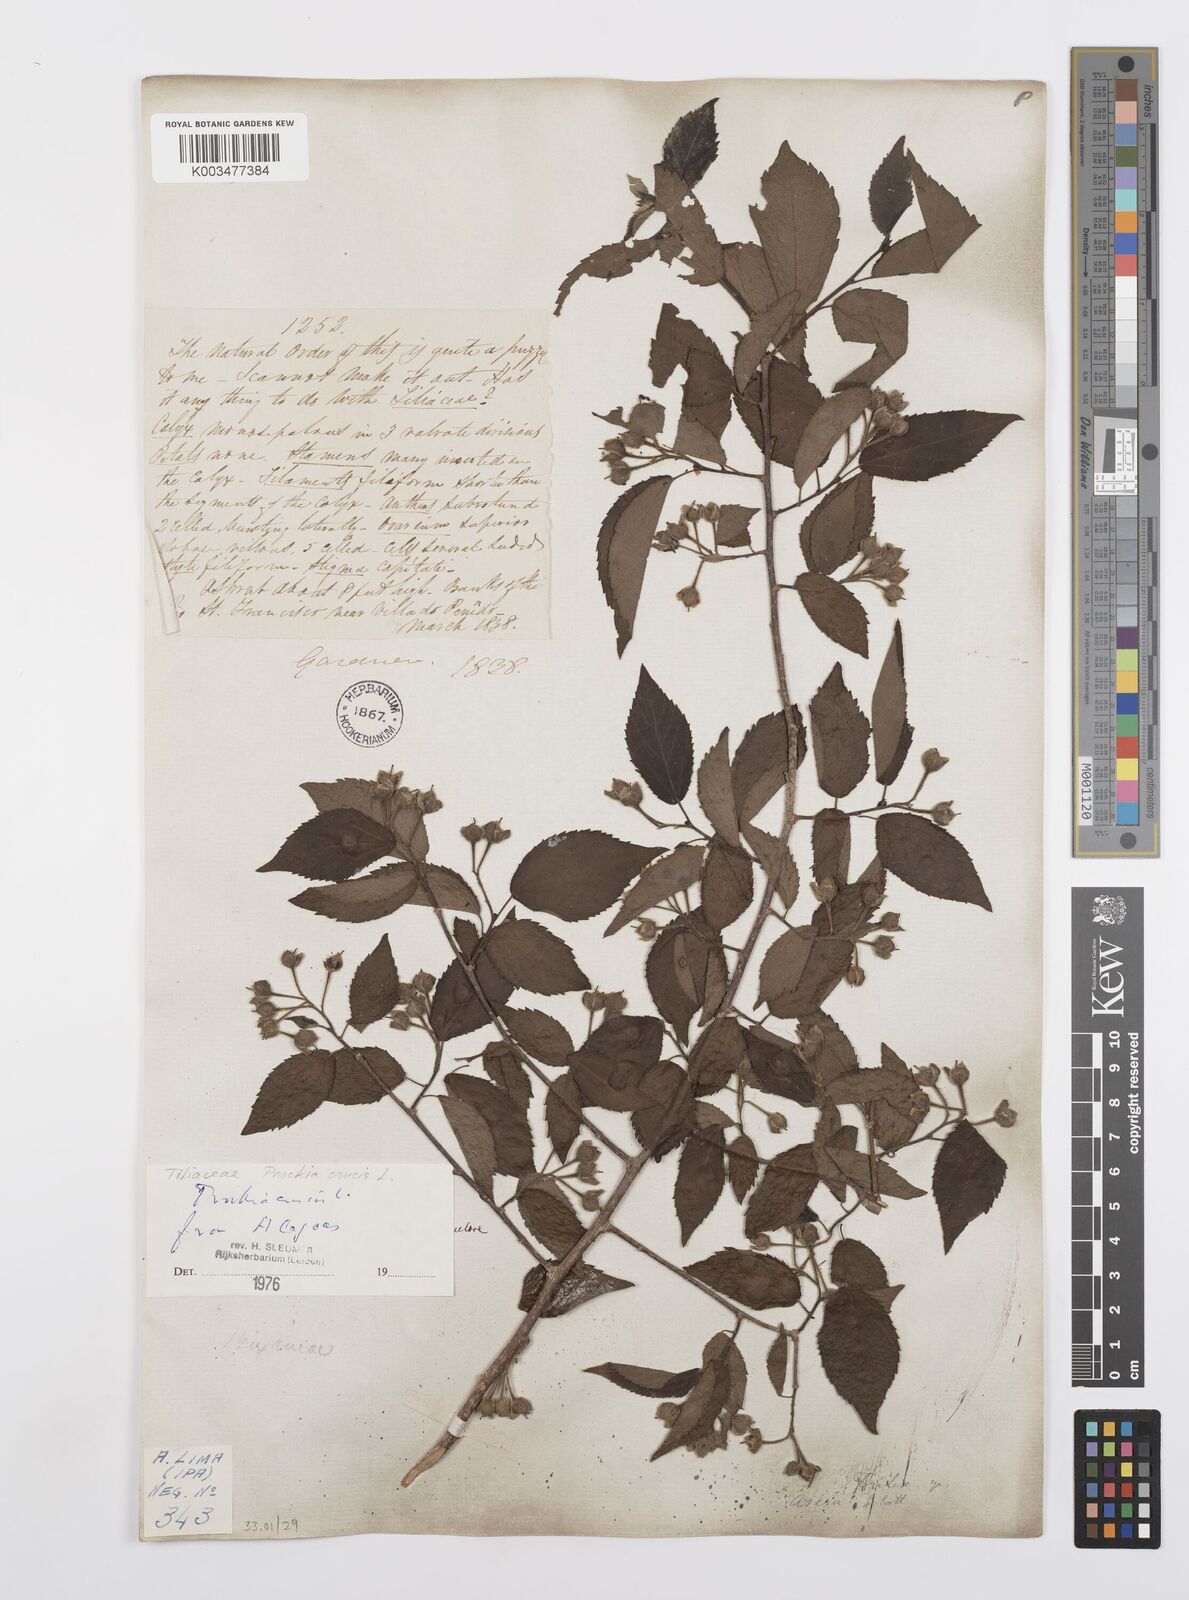 ROYAL BOTANIC GARDENS KEW
K003477384
1252.
The natural order of this is quite a puzzle
to me – I cannot make it out – Has
it any thing to do with Tiliaceae?
Calyx monosepalous in 3 valvate divisions
Petals none. Stamens many inserted on
the Calyx – Filaments filiform shorter than
the segments of the Calyx – Anthers subrotund
2 celled, bursting laterally – Ovarium superior
villous, 5 celled – Cells several seeded
Style filiform – Stigma capitate –
A Shrub about 8 feet high. Banks of the
St. Francisco near Villa do Penedo –
March 1838.
Gardner. 1838.
HERBARIUM
1867.
HOOKERIANUM
Tiliaceae Prockia crucis L.
Prockia crucis L.
from Alagoas
rev. H. SLEUMER
Rijksherbarium (Leiden)
DET. 19
1976
Bixineae
A. LIMA
(IPA)
NEG. Nº
343
33.01/29
inches
Density
Don Williams
M001120
centimeters
Kew
Royal Botanic Gardens
copyright reserved
0 1 2 3 4 5 6 7 8 9 10
cm